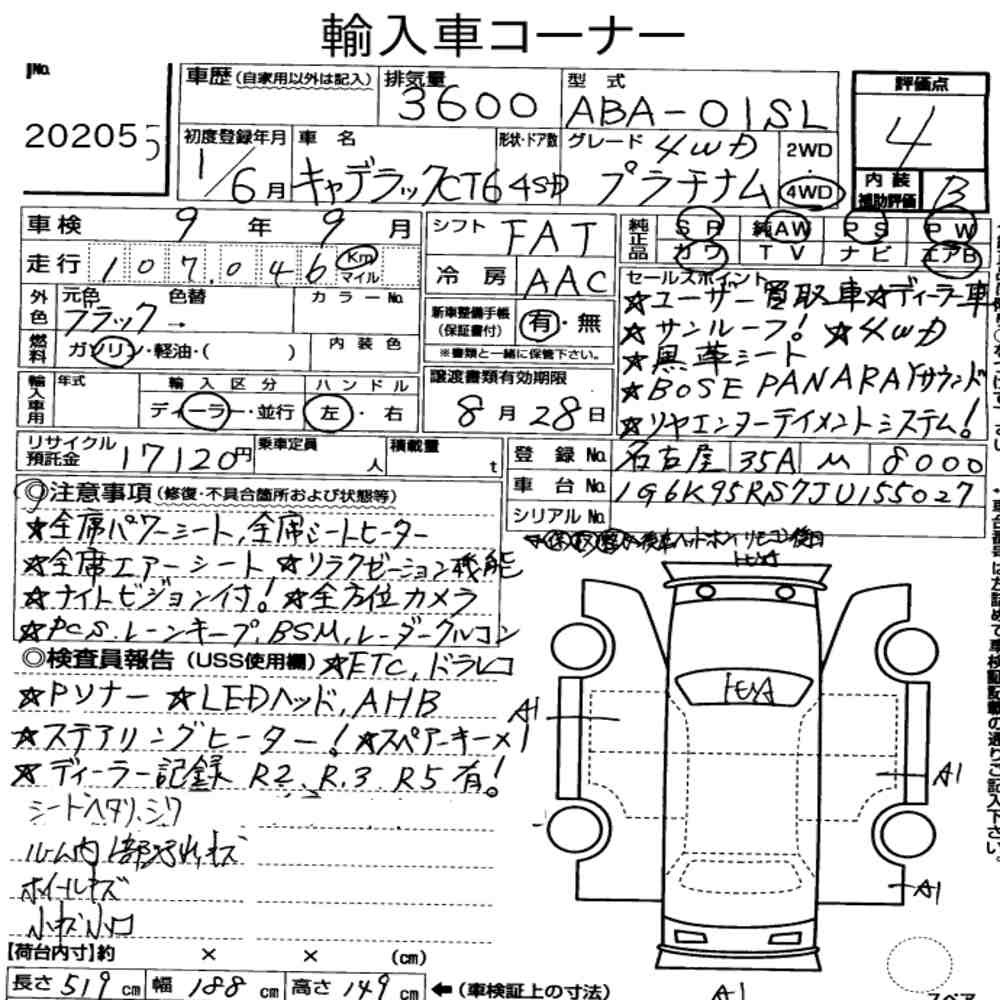 輸入車コーナー
No.
20205
車歴 (自家用以外は記入)
排気量 3600
型式 ABA-01SL
評価点 4
初度登録年月 1/6月
車名 キャデラックCT6
形状・ドア数 4SD
グレード 4WD プラチナム
2WD・4WD
内装補助評価 B
車検 9年 9月
走行 107,046 Km マイル
シフト FAT
冷房 AAC
純正品 SR 純AW PS PW
カワ TV ナビ エアB
外色 元色 ブラック → 色替 カラーNo.
燃料 ガソリン・軽油・( ) 内装色
新車整備手帳(保証書付) 有・無
※書類と一緒に保管下さい。
輸入車用 年式 輸入区分 ディーラー・並行 ハンドル 左・右
譲渡書類有効期限 8月28日
セールスポイント
★ユーザー買取車★ディーラー車
★サンルーフ! ★4WD
★黒革シート
★BOSE PANARAYサウンド
★リヤエンターテイメントシステム!
リサイクル預託金 17120円 乗車定員 人 積載量 t
登録No. 名古屋 35A ル 8000
車台No. 1G6K95RS7JU155027
シリアルNo.
◎注意事項 (修復・不具合箇所および状態等)
★全席パワーシート,全席シートヒーター
★全席エアーシート ★リラクゼーション機能
★ナイトビジョン付! ★全方位カメラ
★PCS.レーンキープ,BSM,レーダークルコン
◎検査員報告 (USS使用欄) ★ETC,ドラレコ
★Pソナー ★LEDヘッド,AHB
★ステアリングヒーター! ★スペアーキー×1
★ディーラー記録 R2、R.3 R5有!
シートヘタリ、シワ
ルーム内1部汚れ、キズ
ホイールキズ
小キズ小凹
A1
A1
A1
A1
【荷台内寸】約 × × (cm)
長さ 519cm 幅 188cm 高さ 149cm ←(車検証上の寸法)
スペア